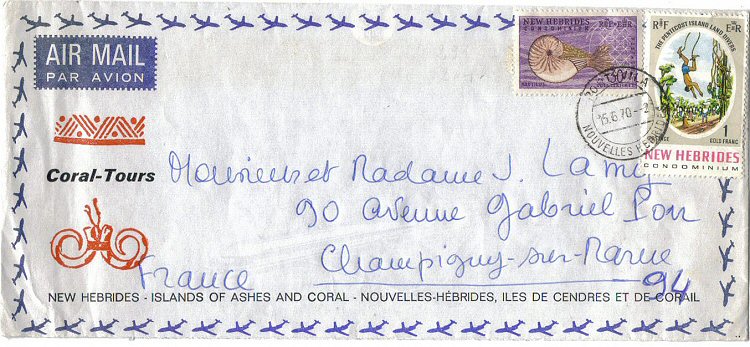 AIR MAIL
PAR AVION
Coral-Tours
NEW HEBRIDES
CONDOMINIUM
NAUTILUS
30
R.F. E II R
THE PENTECOST ISLAND LAND DIVERS
1
GOLD FRANC
NEW HEBRIDES
CONDOMINIUM
PORT-VILA
15.6.70
NOUVELLES HEBRIDES
Monsieur et Madame J. Lamy
90 avenue Gabriel Péri
Champigny-sur-Marne
France
94
NEW HEBRIDES - ISLANDS OF ASHES AND CORAL - NOUVELLES-HÉBRIDES, ILES DE CENDRES ET DE CORAIL